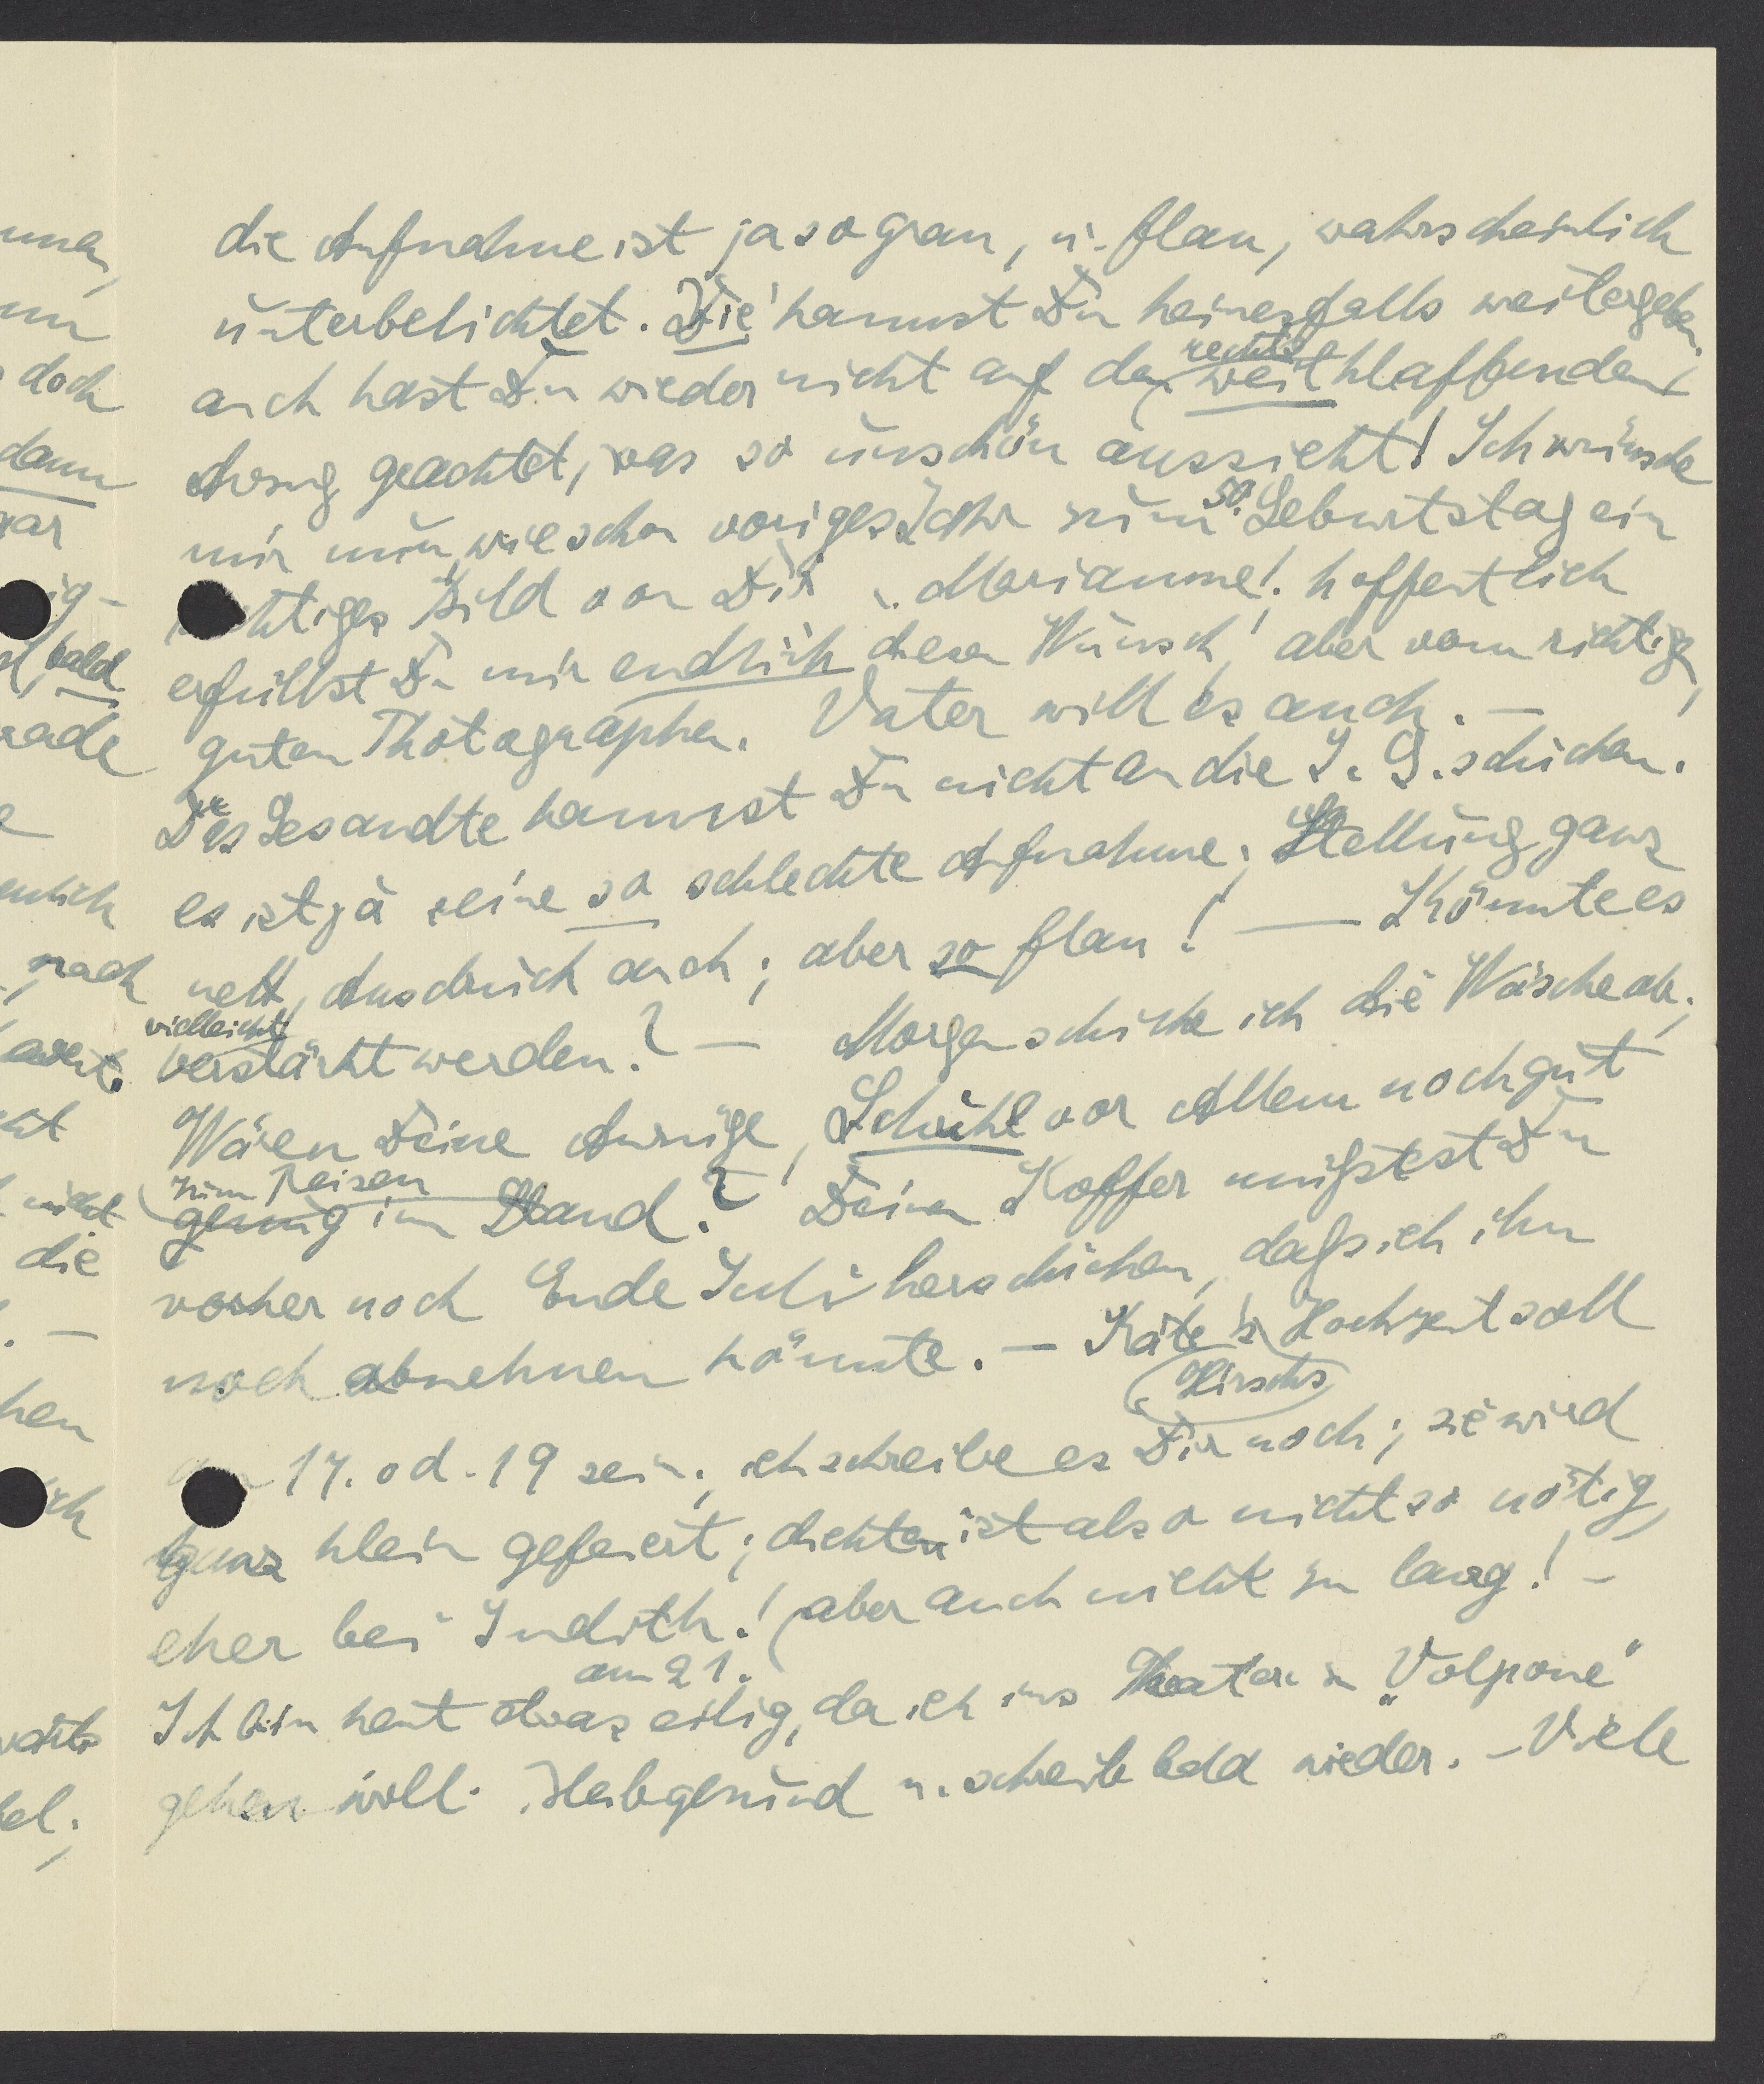 die Aufnahme ist ja so grau, u. flau, wahrscheinlich
unterbelichtet. Die kannst Du keinesfalls weitergeben,
auch hast Du wieder nicht auf den rechts weit klaffenden
Anzug geachtet, was so unschön aussieht! Ich wünsche
mir nun, wie schon voriges Jahr zum 50. Geburtstag ein
richtiges Bild von Dir u. Marianne! hoffentlich
erfüllst Du mir endlich diesen Wunsch! aber vom richtigen,
guten Photographen. Vater will es auch. —
Der Gesandte kannst Du nicht an die I. G. schicken.
es ist ja eine so schlechte Aufnahme; Stellung ganz
nett, Ausdruck auch; aber so flau! — Könnte es
vielleicht
verstärkt werden? — Morgen schicke ich die Wäsche ab;
Wären Deine Anzüge, Schuhe vor Allem noch gut
zum Reisen
genug im Stand? Deinen Koffer müßtest Du
vorher noch Ende Juli herschicken, daß ich ihn
noch abnehmen könnte. — Käte's Hochzeit soll
(Hirschs)
am 17. od. 19 sein; ich schreibe es Dir noch; sie wird
ganz klein gefeiert; dichten ist also nicht so nötig,
eher bei Judith! (aber auch nicht zu lang! –
am 21.
Ich bin heut etwas eilig, da ich ins Theater in „Volpone"
gehen will. Bleib gesund u. schreib bald wieder. – Viele
doch
dann
war
bald
nach
nicht
die